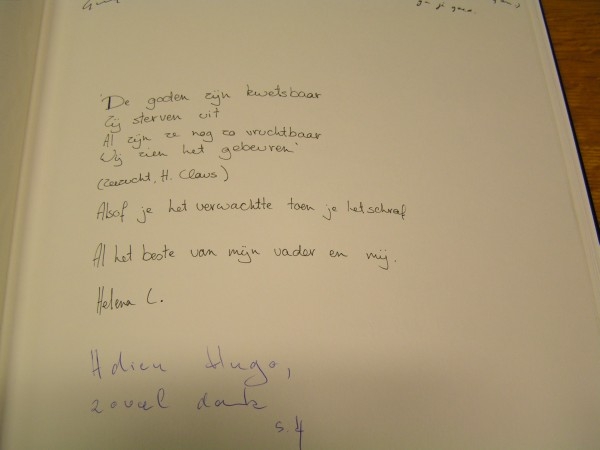 'De goden zijn kwetsbaar
Zij sterven uit
Al zijn ze nog zo vruchtbaar
Wij zien het gebeuren'
(zerzucht, H. Claus)
Alsof je het verwachtte toen je het schreef
Al het beste van mijn vader en mij.
Helena C.
Adieu Hugo,
zoveel dank